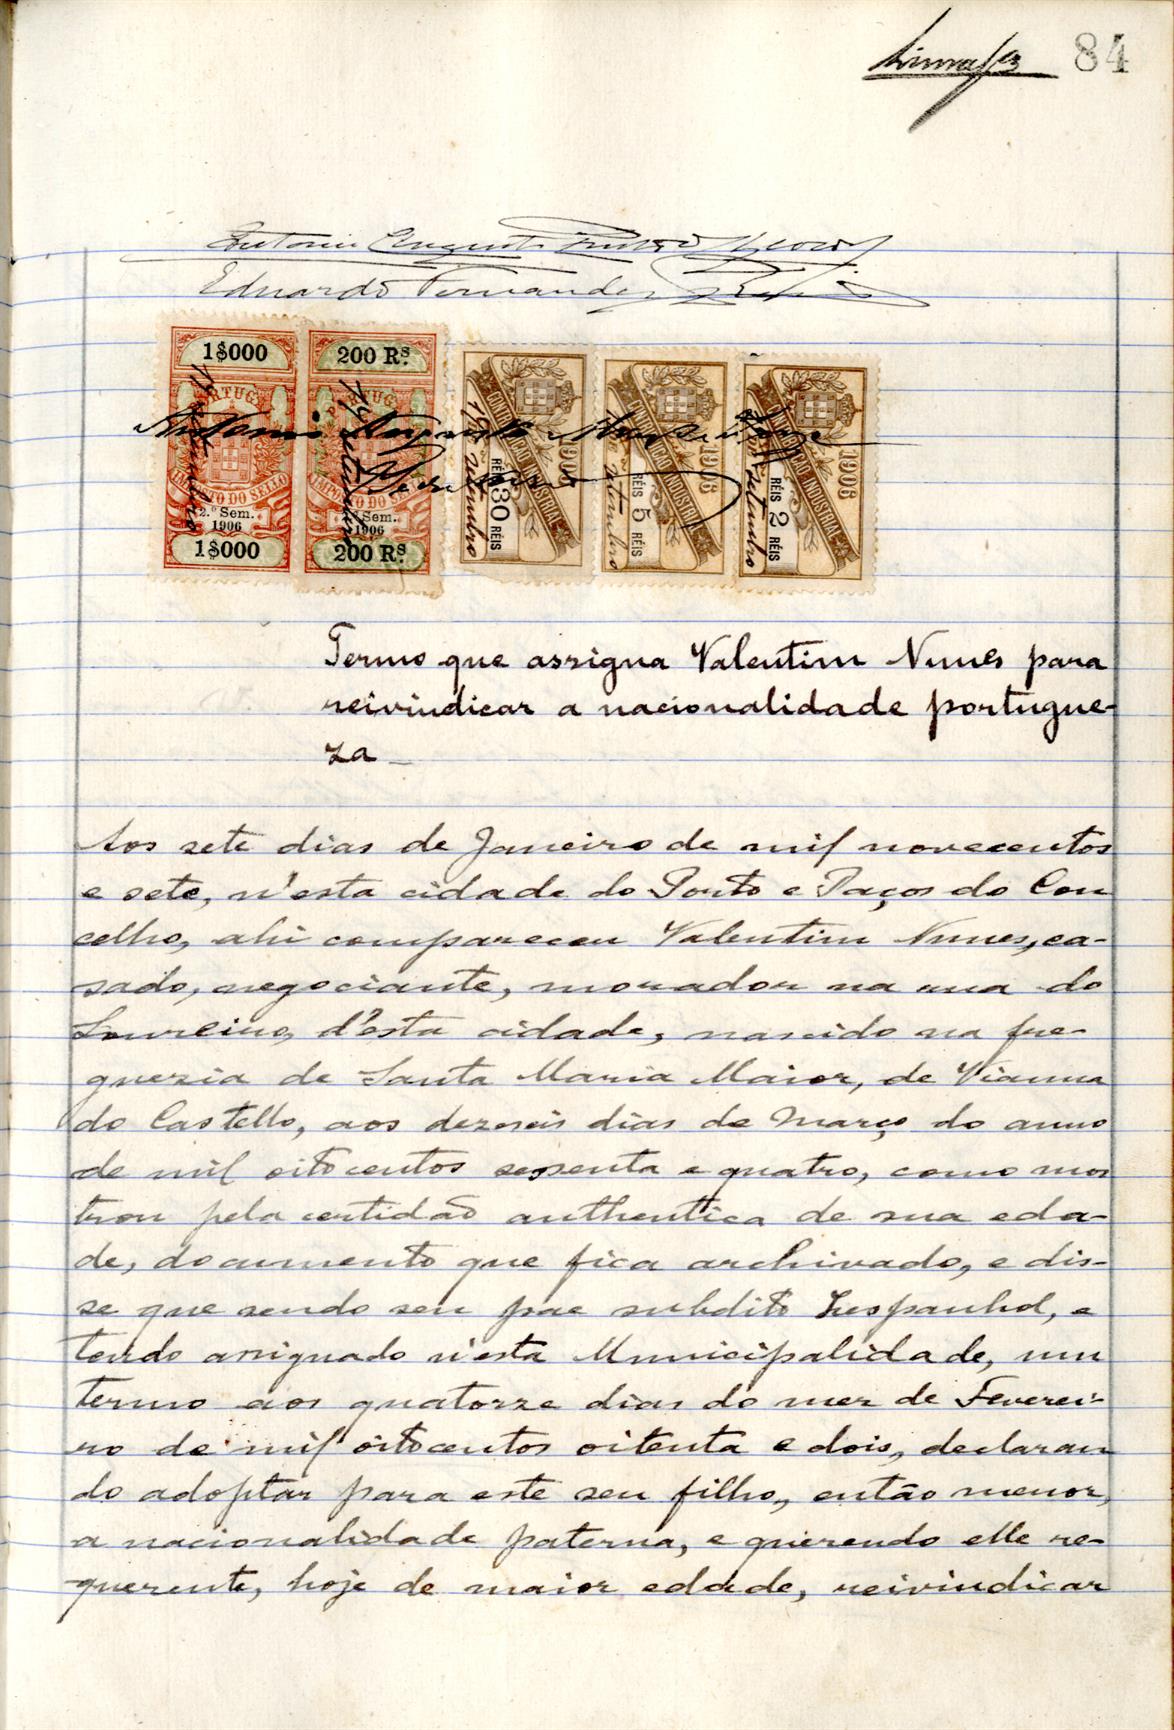 84
Eduardo Fernandes
1$000
200 Rs.
PORTUGAL
PORTUGAL
IMPOSTO DO SELLO
IMPOSTO DO SELLO
2.º Sem.
1906
Sem.
1906
1$000
200 Rs.
CONTRIBUIÇÃO INDUSTRIAL
1906
RÉIS 30 RÉIS
CONTRIBUIÇÃO INDUSTRIAL
1906
RÉIS 5 RÉIS
CONTRIBUIÇÃO INDUSTRIAL
1906
RÉIS 2 RÉIS
Antonio Augusto
Termo que assigna Valentim Nunes para
reivindicar a nacionalidade portugue-
za
Aos sete dias de Janeiro de mil novecentos
e sete, n'esta cidade do Porto e Paços do Con
celho, ahi compareceu Valentim Nunes, ca-
sado, negociante, morador na rua do
Loureiro, d'esta cidade, nascido na fre-
guezia de Santa Maria Maior, de Vianna
do Castello, aos dezeseis dias de Março do anno
de mil oitocentos sessenta e quatro, como mos
trou pela certidão authentica de sua eda-
de, documento que fica archivado, e dis-
se que sendo seu pae subdito hespanhol, e
tendo assignado n'esta Municipalidade, um
termo aos quatorze dias do mez de Feverei-
ro de mil oitocentos oitenta e dois, declaran
do adoptar para este seu filho, então menor,
a nacionalidade paterna, e querendo elle re-
querente, hoje de maior edade, reivindicar